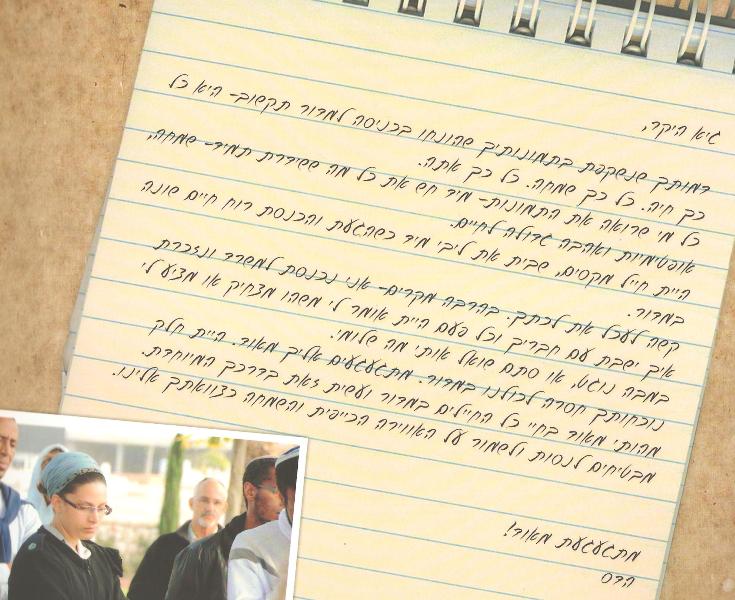 גיא היקר,
דמותך שנשקפת בתמונותיך שהונחו בכניסה למדור תקשוב- היא כל
כך חיה. כל כך שמחה. כל כך אתה.
כל מי שרואה את התמונות- מיד חש את כל מה ששידרת תמיד- שמחה,
אופטימיות ואהבה גדולה לחיים.
היית חייל מקסים, שבית את ליבי מיד כשהגעת והכנסת רוח חיים שונה
במדור.
קשה לעכל את לכתך. בהרבה מקרים- אני נכנסת למשרד ונזכרת
איך ישבת עם חבריך וכל פעם היית אומר לי משהו מצחיק או מציע לי
במבה נוגט, או סתם שואל אותי מה שלומי.
נוכחותך חסרה לכולנו במדור. מתגעגעים אליך מאוד. היית חלק
מהותי מאוד בחיי כל החיילים במדור ועשית זאת בדרכך המיוחדת.
מבטיחים לנסות ולשמור על האווירה הכייפית והשמחה כצוואתך אלינו.
מתגעגעת מאוד!
הדס